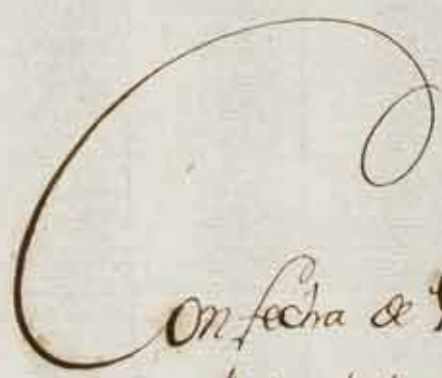 Con fecha de